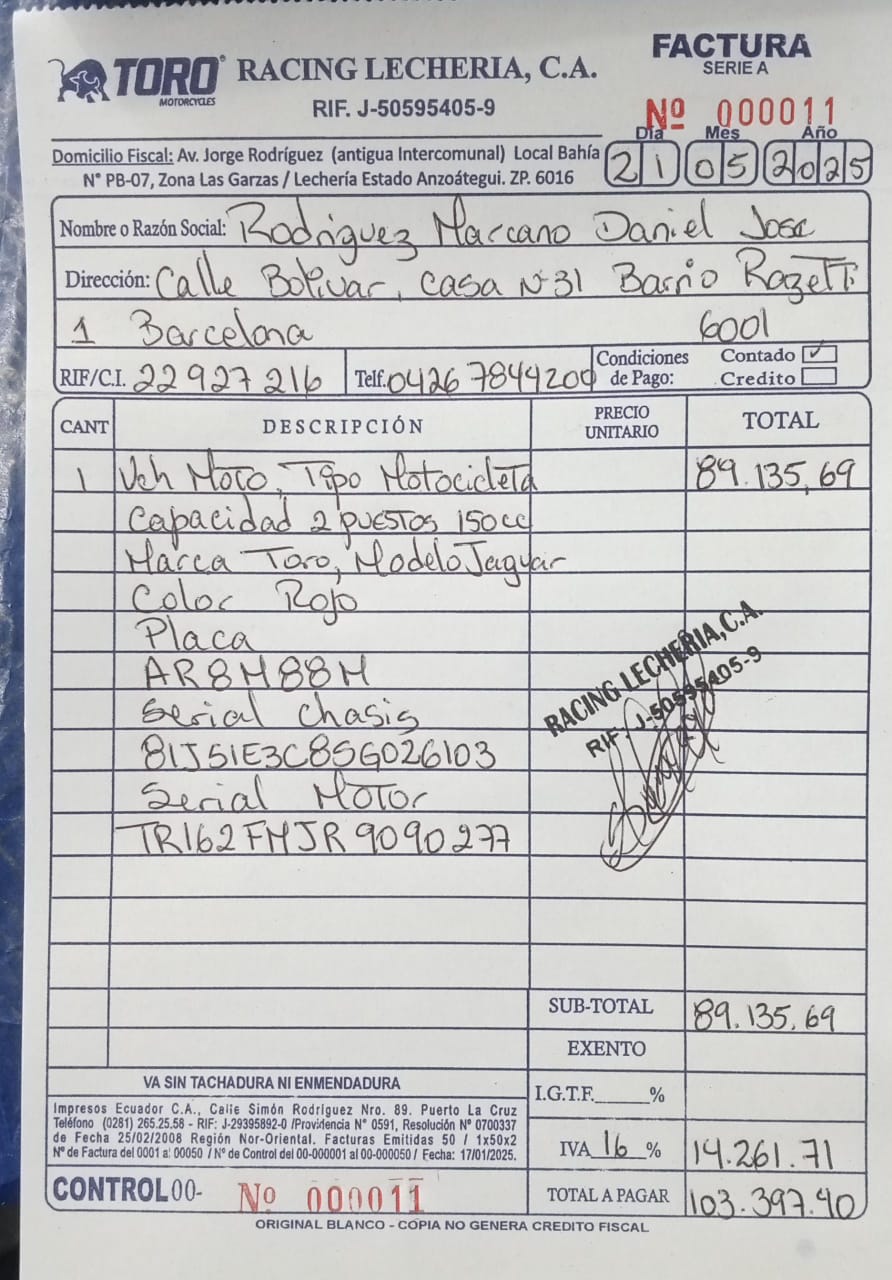 TORO® RACING LECHERIA, C.A.
MOTORCYCLES
RIF. J-50595405-9
FACTURA
SERIE A
Nº 000011
Día Mes Año
21 05 2025
Domicilio Fiscal: Av. Jorge Rodríguez (antigua Intercomunal) Local Bahía
N° PB-07, Zona Las Garzas / Lechería Estado Anzoátegui. ZP. 6016
Nombre o Razón Social: Rodriguez Marcano Daniel Jose
Dirección: Calle Bolivar, casa N°31 Barrio Rozetti
1 Barcelona 6001
RIF/C.I. 22927216 Telf. 04267844200 Condiciones de Pago: Contado ✓ Credito
CANT DESCRIPCIÓN PRECIO UNITARIO TOTAL
1 Veh Moto, Tipo Motocicleta 89.135,69
Capacidad 2 puestos 150cc
Marca Toro, Modelo Jaguar
Color Rojo
Placa
AR8M88M
Serial Chasis
81J51E3C8SG026103
Serial Motor
TR162FMJR9090277
RACING LECHERIA, C.A.
RIF. J-50595405-9
SUB-TOTAL 89.135,69
EXENTO
I.G.T.F.______%
IVA 16 % 14.261.71
TOTAL A PAGAR 103.397.40
VA SIN TACHADURA NI ENMENDADURA
Impresos Ecuador C.A., Calle Simón Rodríguez Nro. 89. Puerto La Cruz
Teléfono (0281) 265.25.58 - RIF: J-29395892-0 /Providencia N° 0591, Resolución N° 0700337
de Fecha 25/02/2008 Región Nor-Oriental. Facturas Emitidas 50 / 1x50x2
N° de Factura del 0001 al 00050 / N° de Control del 00-000001 al 00-000050 / Fecha: 17/01/2025.
CONTROL 00- Nº 000011
ORIGINAL BLANCO - COPIA NO GENERA CREDITO FISCAL